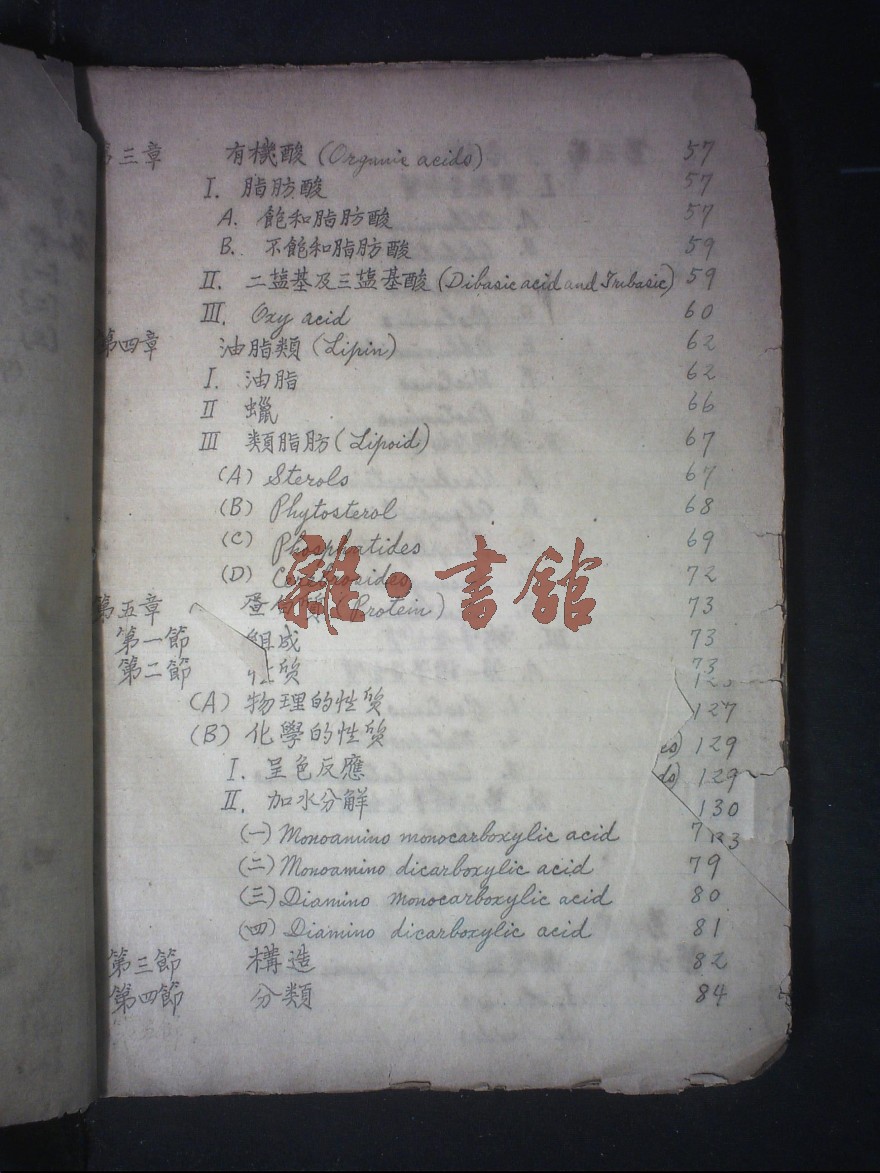 第三章 有機酸 (Organic acids) 57
I. 脂肪酸 57
A. 飽和脂肪酸 57
B. 不飽和脂肪酸 59
II. 二塩基及三塩基酸 (Dibasic acid and Tribasic) 59
III. Oxy acid 60
第四章 油脂類 (Lipin) 62
I. 油脂 62
II 蠟 66
III 類脂肪 (Lipoid) 67
(A) Sterols 67
(B) Phytosterol 68
(C) Phosphatides 69
(D) Cerebrosides 72
第五章 蛋白類 (Protein) 73
第一節 組成 73
第二節 性质 73
(A) 物理的性质 127
(B) 化學的性质 129
I. 呈色反應 129
II. 加水分解 130
(一) Monoamino monocarboxylic acid 7
(二) Monoamino dicarboxylic acid 79
(三) Diamino monocarboxylic acid 80
(四) Diamino dicarboxylic acid 81
第三節 構造 82
第四節 分類 84
雜·書館